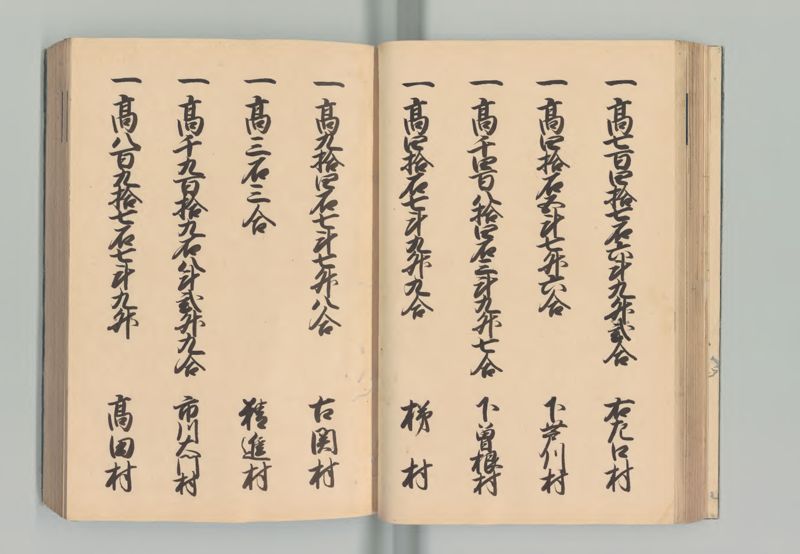 一高七百四拾七石六斗九升弐合 右左口村
一高四拾石五斗七升六合 下芦川村
一高千四百八拾四石三斗九升七合 下曽根村
一高四拾石七斗九升九合 梯村
一高九拾四石七斗七升八合 古関村
一高三石三合 精進村
一高千九百拾九石八斗弐升九合 市川大門村
一高八百九拾七石七斗九升 高田村